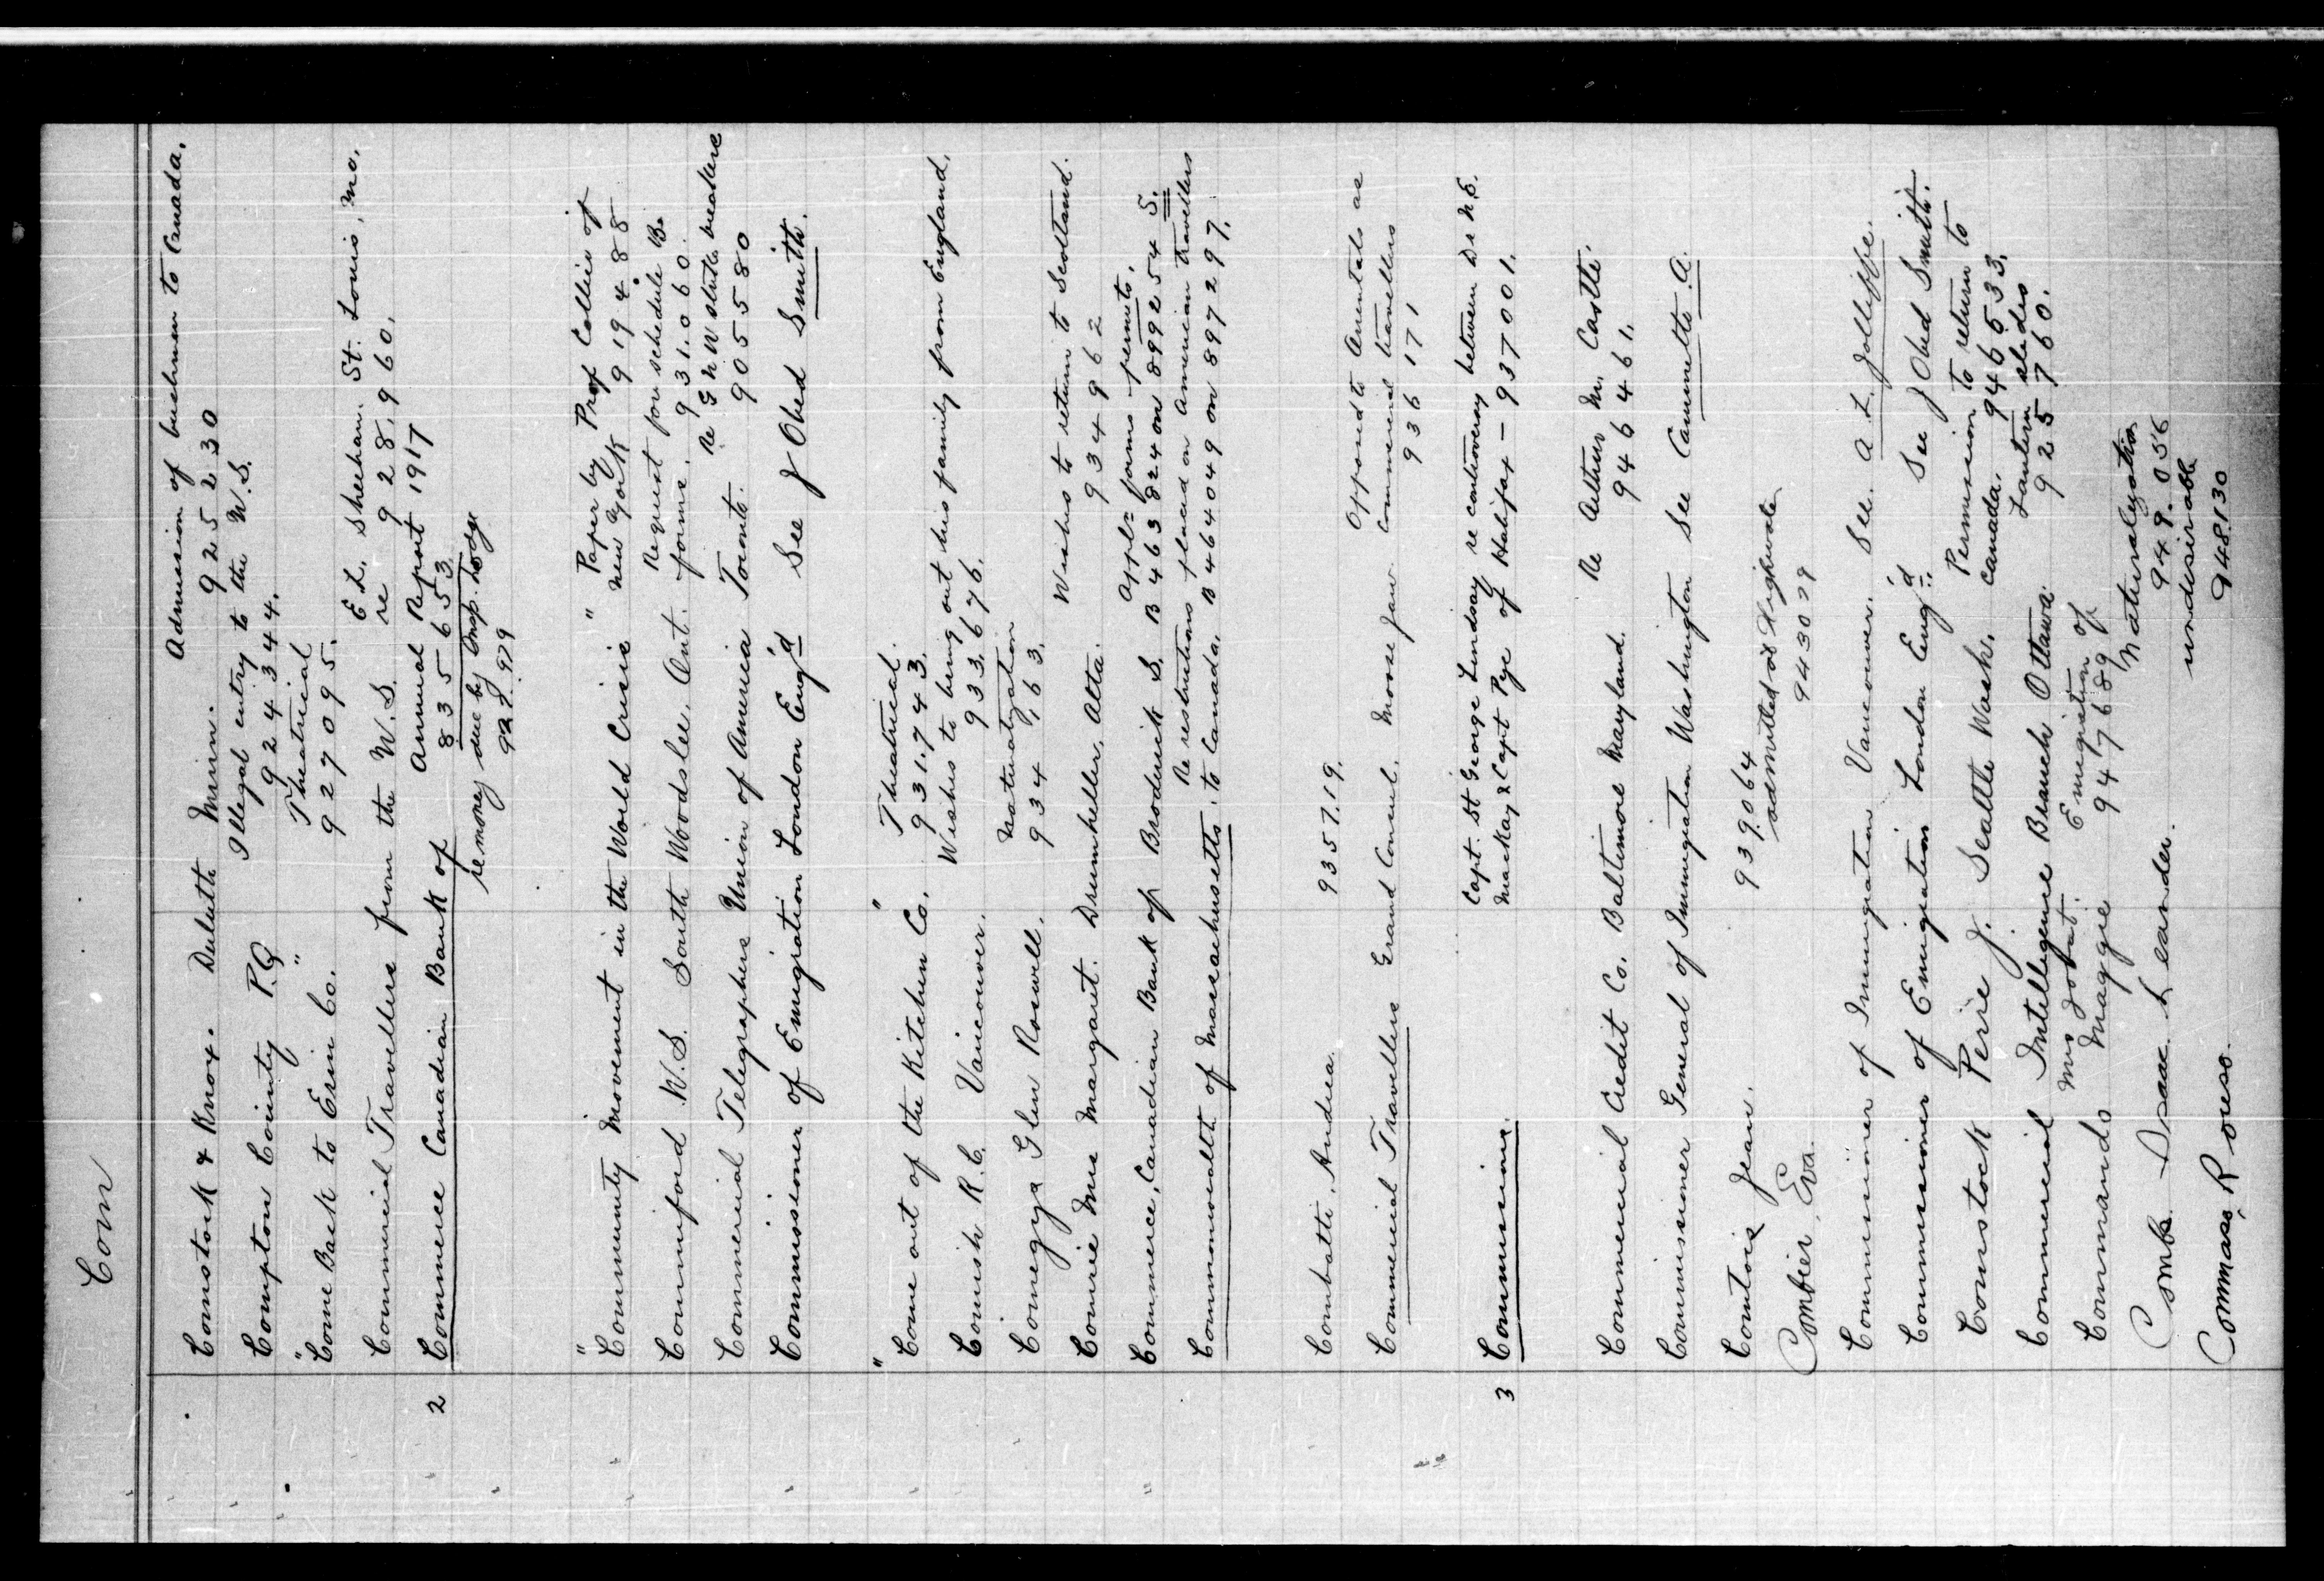 Com
Admission of bushmen to Canada.
Comstock & Knox. Duluth Minn. 925230
Illegal entry to the U.S.
Compton County P.Q. 924344.
" " Theatrical
Come Back to Erin Co. 927095.
E. L. Sheehan. St. Louis, Mo.
Commercial Travellers from the U.S. re 928,960.
Annual Report 1917
2 Commerce Canadian Bank of 835653
re money due by Insp. Lodge
927.979
" " Paper by Prof Collier of
Community Movement in the World Crisis New York 919488
Request for schedule B.
Commiford W.S. South Woodslee, Ont. forms. 931.060.
Re G N W strike breakers
Commercial Telegraphers Union of America Toronto. 905580
Commissioner of Emigration London Eng'd See J Obed Smith.
" " Theatrical.
Come out of the Kitchen Co. 931.743.
Wishes to bring out his family from England.
Comish R.C. Vancouver. 933.676.
Naturalization
Comegys Glen Roswell. 934,163.
Wishes to return to Scotland.
Comrie Mrs Margaret. Drumheller, Alta. 934962
Appl= forms permits.
Commerce, Canadian Bank of Broderick S. B463824 on 899254 S.
Re restrictions placed on American travellers
Commonwealth of Massachusetts. to Canada. B464049 on 897297.
Combatti, Andrea. 935719.
Opposed to Orientals as
Commercial Travellers Grand Council. Moose Jaw commercial travellers
936171
Capt. St George Lindsay re controversy between D & N.S.
3 Commissions. MacKay & Capt Pye of Halifax - 937001.
Re Arthur M. Castle.
Commercial Credit Co. Baltimore Maryland. 946461.
Commissioner General of Immigration Washington See Caminetti A.
Comtois Jean. 939.064
admitted at Highwater
Combier, Eva. 943079
Commissioner of Immigration Vancouver. See. A. L. Jolliffe.
Commissioner of Emigration London Eng'd See J Obed Smith.
Permission to return to
Comstock Perie J. Seattle Wash. Canada. 946533.
Lantern slides
Commercial Intelligence Branch Ottawa. 925760.
Mrs Emigration of
Commando Maggie 947689
Naturalization
Combs Isaac Leander. 949.056
undesirable
Commas, Rouso. 948130